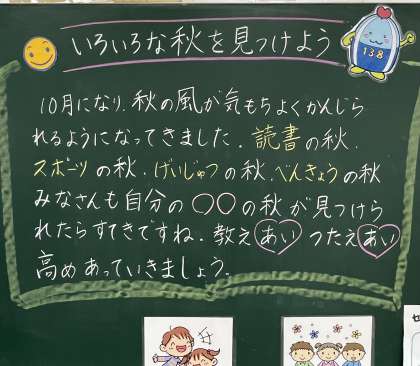 いろいろな秋を見つけよう
138
10月になり、秋の風が気もちよくかんじら
れるようになってきました。読書の秋、
スポーツの秋、げいじゅつの秋、べんきょうの秋
みなさんも自分の○○の秋が見つけら
れたらすてきですね。教えあい つたえあい
高めあっていきましょう。